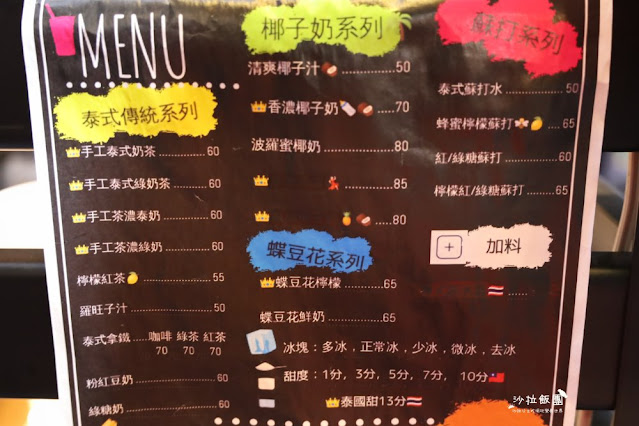 MENU
泰式傳統系列
手工泰式奶茶 60
手工泰式綠奶茶 60
手工茶濃泰奶 60
手工茶濃綠奶 60
檸檬紅茶 55
羅旺子汁 50
泰式拿鐵 咖啡 綠茶 紅茶
70 70 70
粉紅豆奶 60
綠糖奶 60
椰子奶系列
清爽椰子汁 50
香濃椰子奶 70
波羅蜜椰奶 80
85
80
蝶豆花系列
蝶豆花檸檬 65
蝶豆花鮮奶 65
冰塊：多冰，正常冰，少冰，微冰，去冰
甜度：1分，3分，5分，7分，10分
泰國甜13分
蘇打系列
泰式蘇打水 50
蜂蜜檸檬蘇打 65
紅/綠糖蘇打 60
檸檬紅/綠糖蘇打 65
加料
沙拉飯團